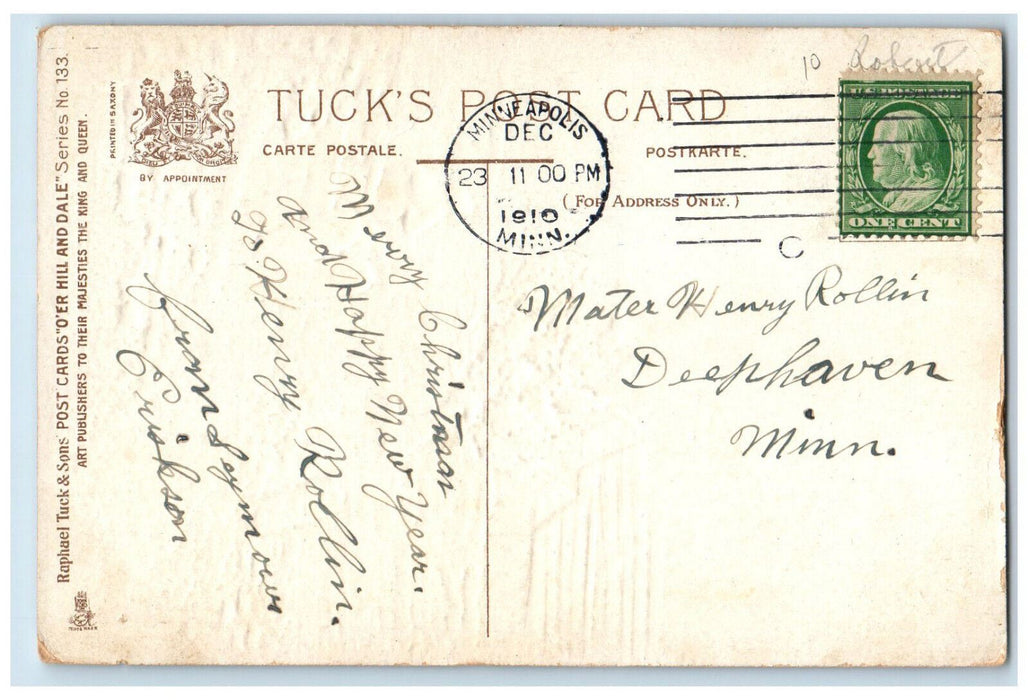 Raphael Tuck & Sons' POST CARDS "O'ER HILL AND DALE" Series No. 133.
ART PUBLISHERS TO THEIR MAJESTIES THE KING AND QUEEN.
PRINTED IN SAXONY
BY APPOINTMENT
TUCK'S POST CARD
CARTE POSTALE.
POSTKARTE.
(FOR ADDRESS ONLY.)
MINNEAPOLIS
DEC
23 11 00 PM
1910
MINN.
C
10 Robert
U.S. POSTAGE
ONE CENT
Merry Christmas
and Happy New Year.
To Henry Rollin.
from Seymour
Erickson
Mater Henry Rollin
Deephaven
Minn.